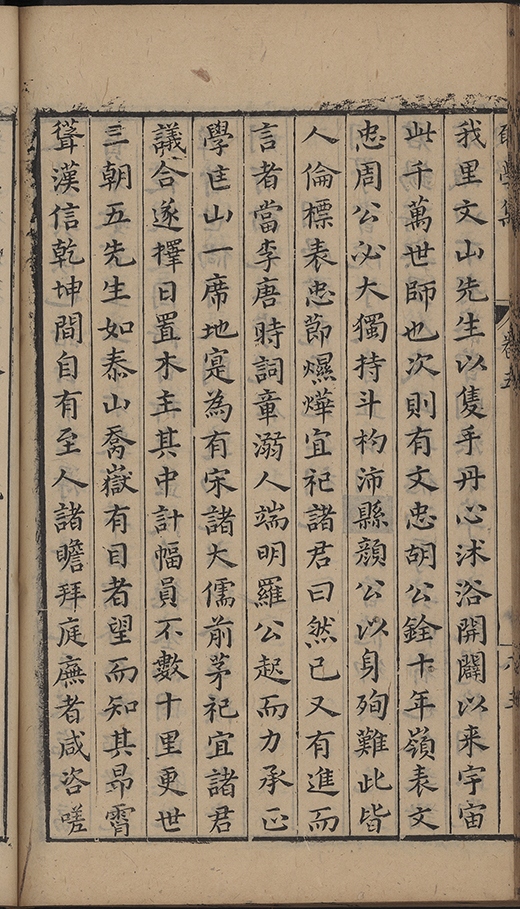 學集 卷五
我里文山先生以隻手丹心沭浴開闢以来宇宙
此千萬世師也次則有文忠胡公銓十年嶺表文
忠周公必大獨持斗杓沛縣顔公以身殉難此皆
人倫標表忠節燁宜祀諸君曰然已又有進而
言者當李唐時詞章溺人端明羅公起而力承正
學匡山一席地寔為有宋諸大儒前茅祀宜諸君
議合遂擇日置木主其中計幅員不數十里更世
三朝五先生如泰山喬嶽有目者望而知其昻霄
聳漢信乾坤間自有至人諸瞻拜庭廡者咸咨嗟